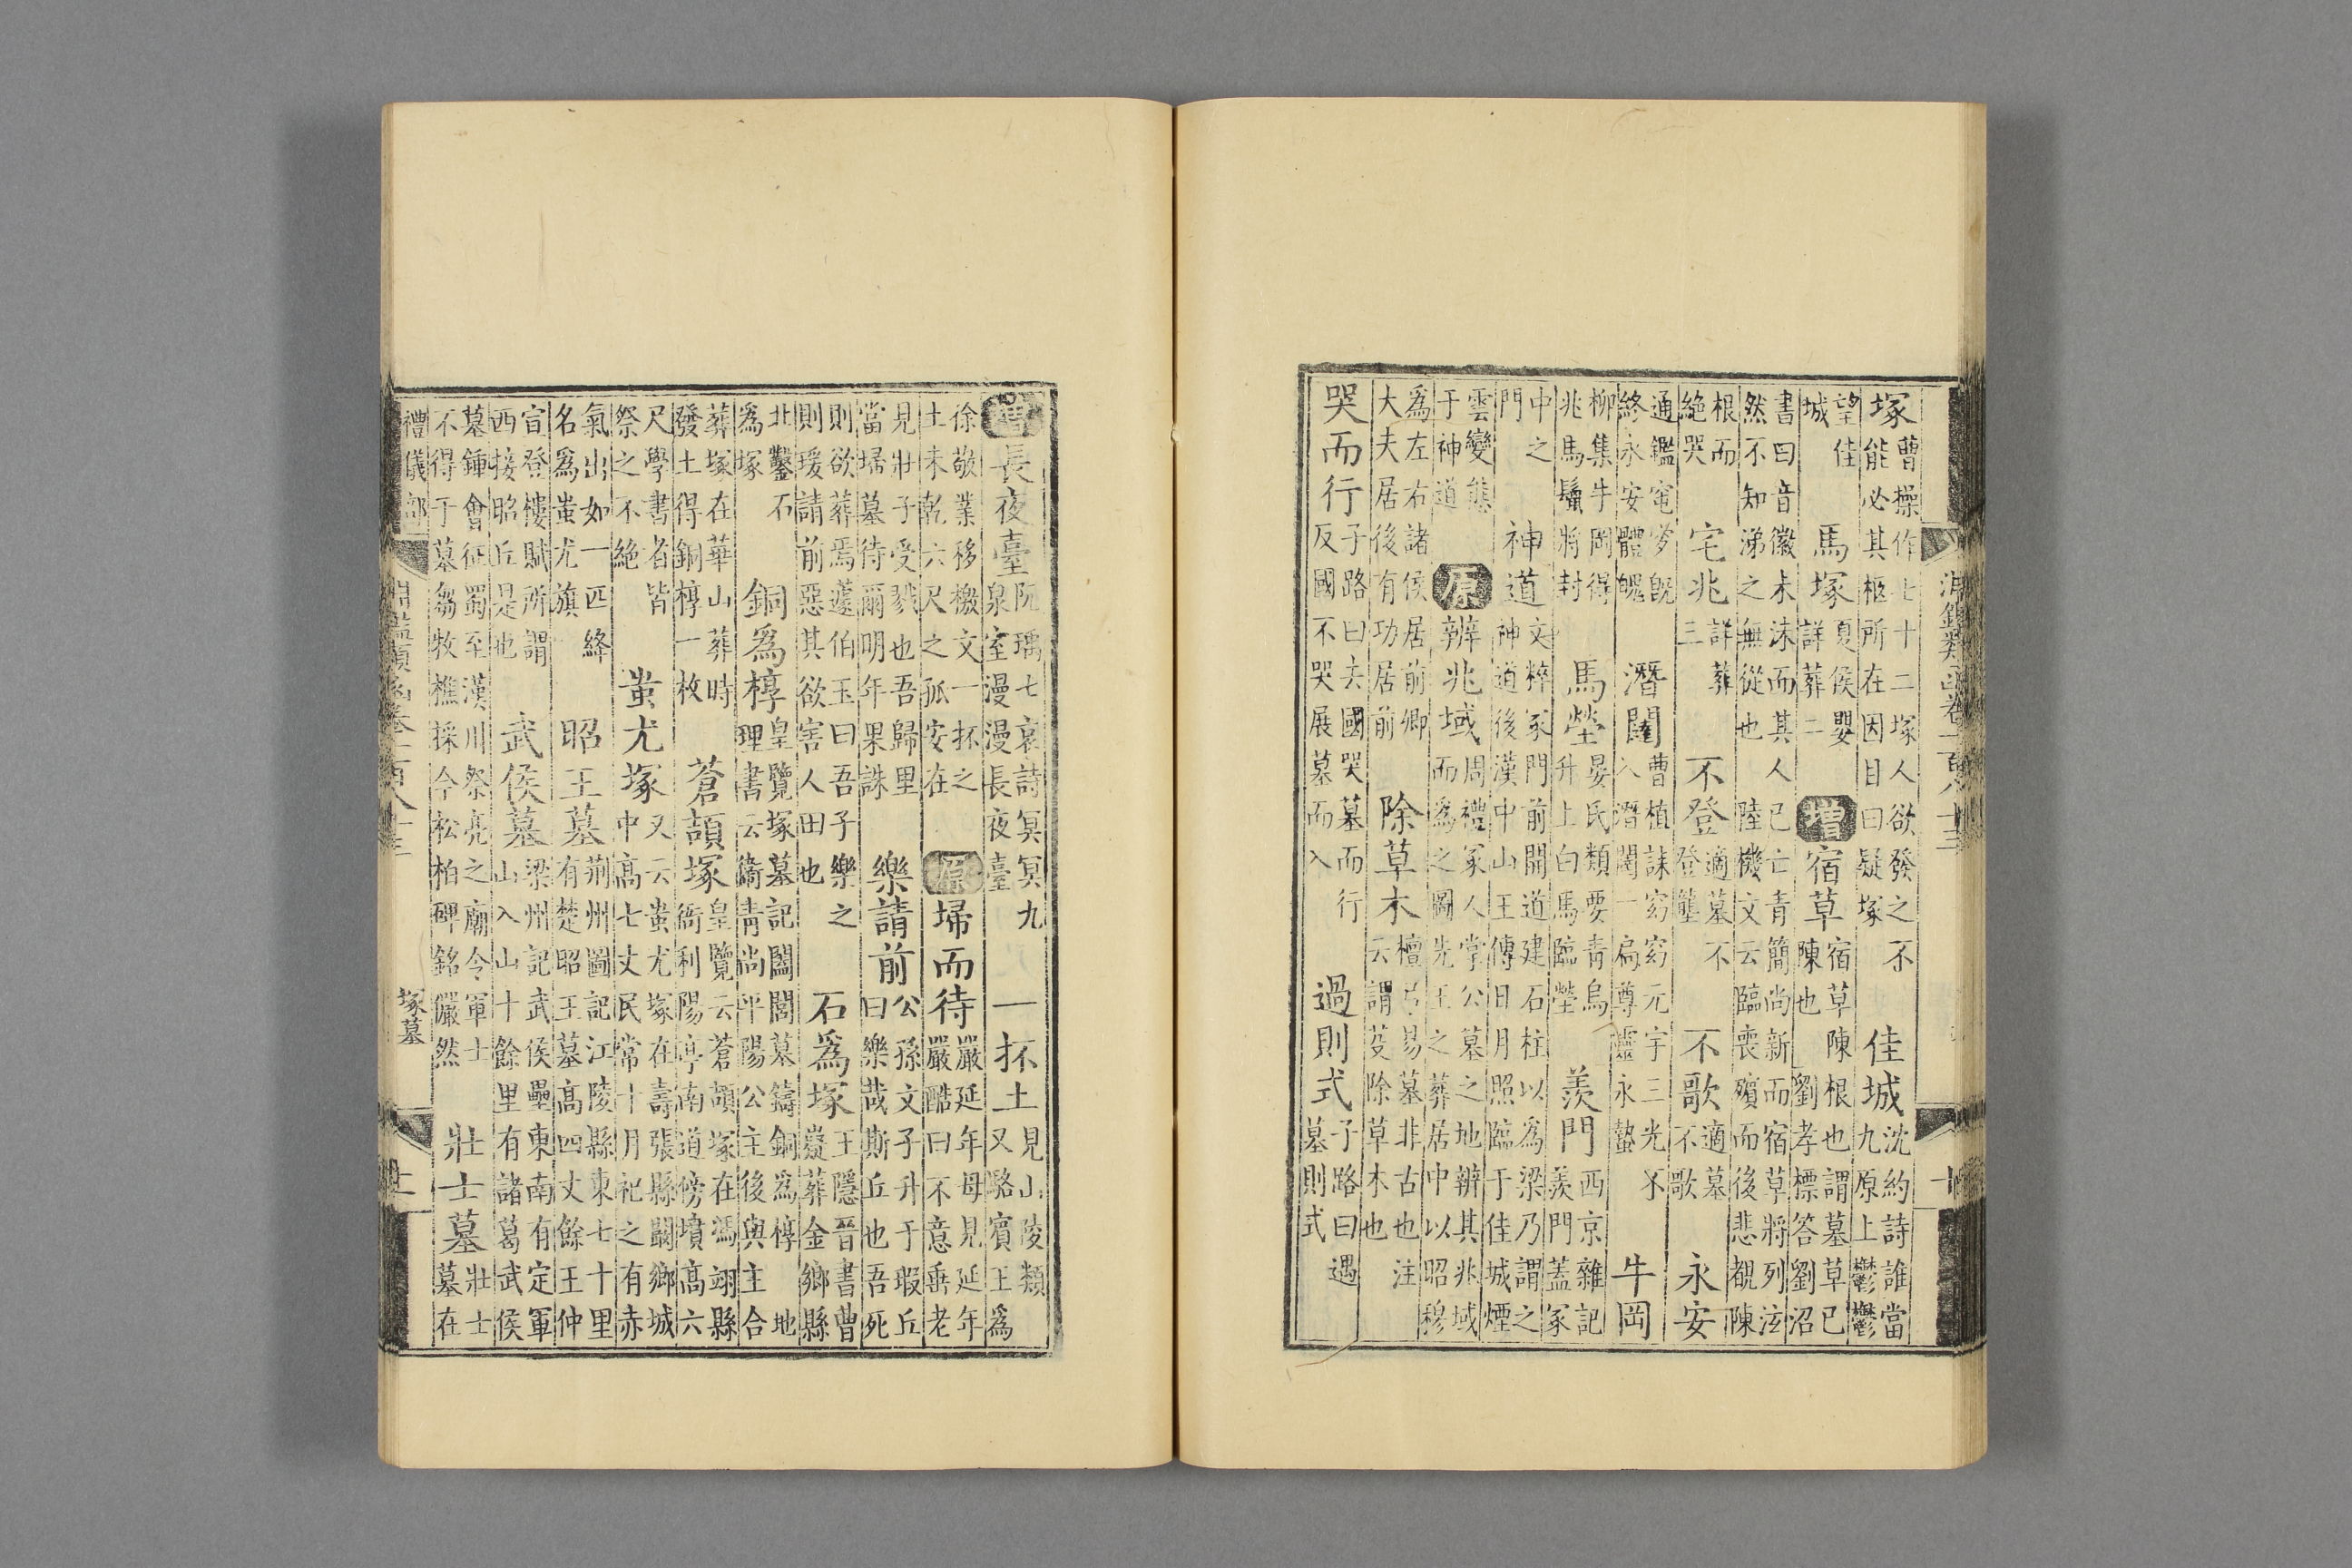 淵鑑類函卷一百八十三 十
塚曹操作七十二塚人欲發之不能必其柩所在因目曰疑塚佳城沈約詩誰當九原上鬱鬱
望佳城馬塚夏侯嬰詳葬二增宿草宿草陳根也謂墓草已陳也劉孝標答劉沼
書曰音徽未沬而其人已亡青簡尚新而宿草將列泫然不知涕之無從也陸機文云臨喪殯而後悲覩陳
根而絶哭宅兆詳葬三不登適墓不登壟不歌適墓不歌永安
通鑑窀穸既終永安體魄潛闥曹植誄窈窈元宇三光不入潛闥一扃尊靈永蟄牛岡
柳集牛岡得兆馬鬣將封馬塋晏氏類要青烏升上白馬臨塋羨門西京雜記羨門蓋冢
中之門神道文粹冢門前開道建石柱以為梁乃謂之神道後漢中山王傳日月照臨于佳城煙
雲變態于神道原辨兆域周禮冢人掌公墓之地辨其兆域而為之圖先王之葬居中以昭穆
為左右諸侯居前卿大夫居後有功居前除草木檀弓易墓非古也注云謂芟除草木也
哭而行子路曰去國哭墓而行反國不哭展墓而入過則式子路曰遇墓則式
增長夜臺阮瑀七哀詩冥冥九泉室漫漫長夜臺一抔土見山陵類又駱賓王為
徐敬業移檄文一抔之土未乾六尺之孤安在原埽而待嚴延年母見延年嚴酷曰不意垂老
見壯子受戮也吾歸里當埽墓待爾明年果誅樂請前公孫文子升于瑕丘曰樂哉斯丘也吾死
則欲葬焉蘧伯玉曰吾子樂之則瑗請前惡其欲害人田也石為塚王隱晉書曹嶷葬金鄉縣
北鑿石為塚銅為槨皇覽塚墓記闔閭墓鑄銅為槨地理書云衛青尚平陽公主後與主合
葬塚在華山葬時發土得銅槨一枚蒼頡塚皇覽云蒼頡塚在馮翊縣衙利陽亭南道傍墳高六
尺學書者皆祭之不絶蚩尤塚又云蚩尤塚在壽張縣闞鄉城中高七丈民常十月祀之有赤
氣出如一匹絳名為蚩尤旗昭王墓荊州圖記江陵縣東七十里有楚昭王墓高四丈餘王仲
宣登樓賦所謂西接昭丘是也武侯墓梁州記武侯壘東南有定軍山入山十餘里有諸葛武侯
墓鍾會征蜀至漢川祭亮之廟今軍士不得于墓芻牧樵採今松柏碑銘儼然壯士墓壯士墓在
禮儀部 淵鑑類函卷一百八十三 塚墓